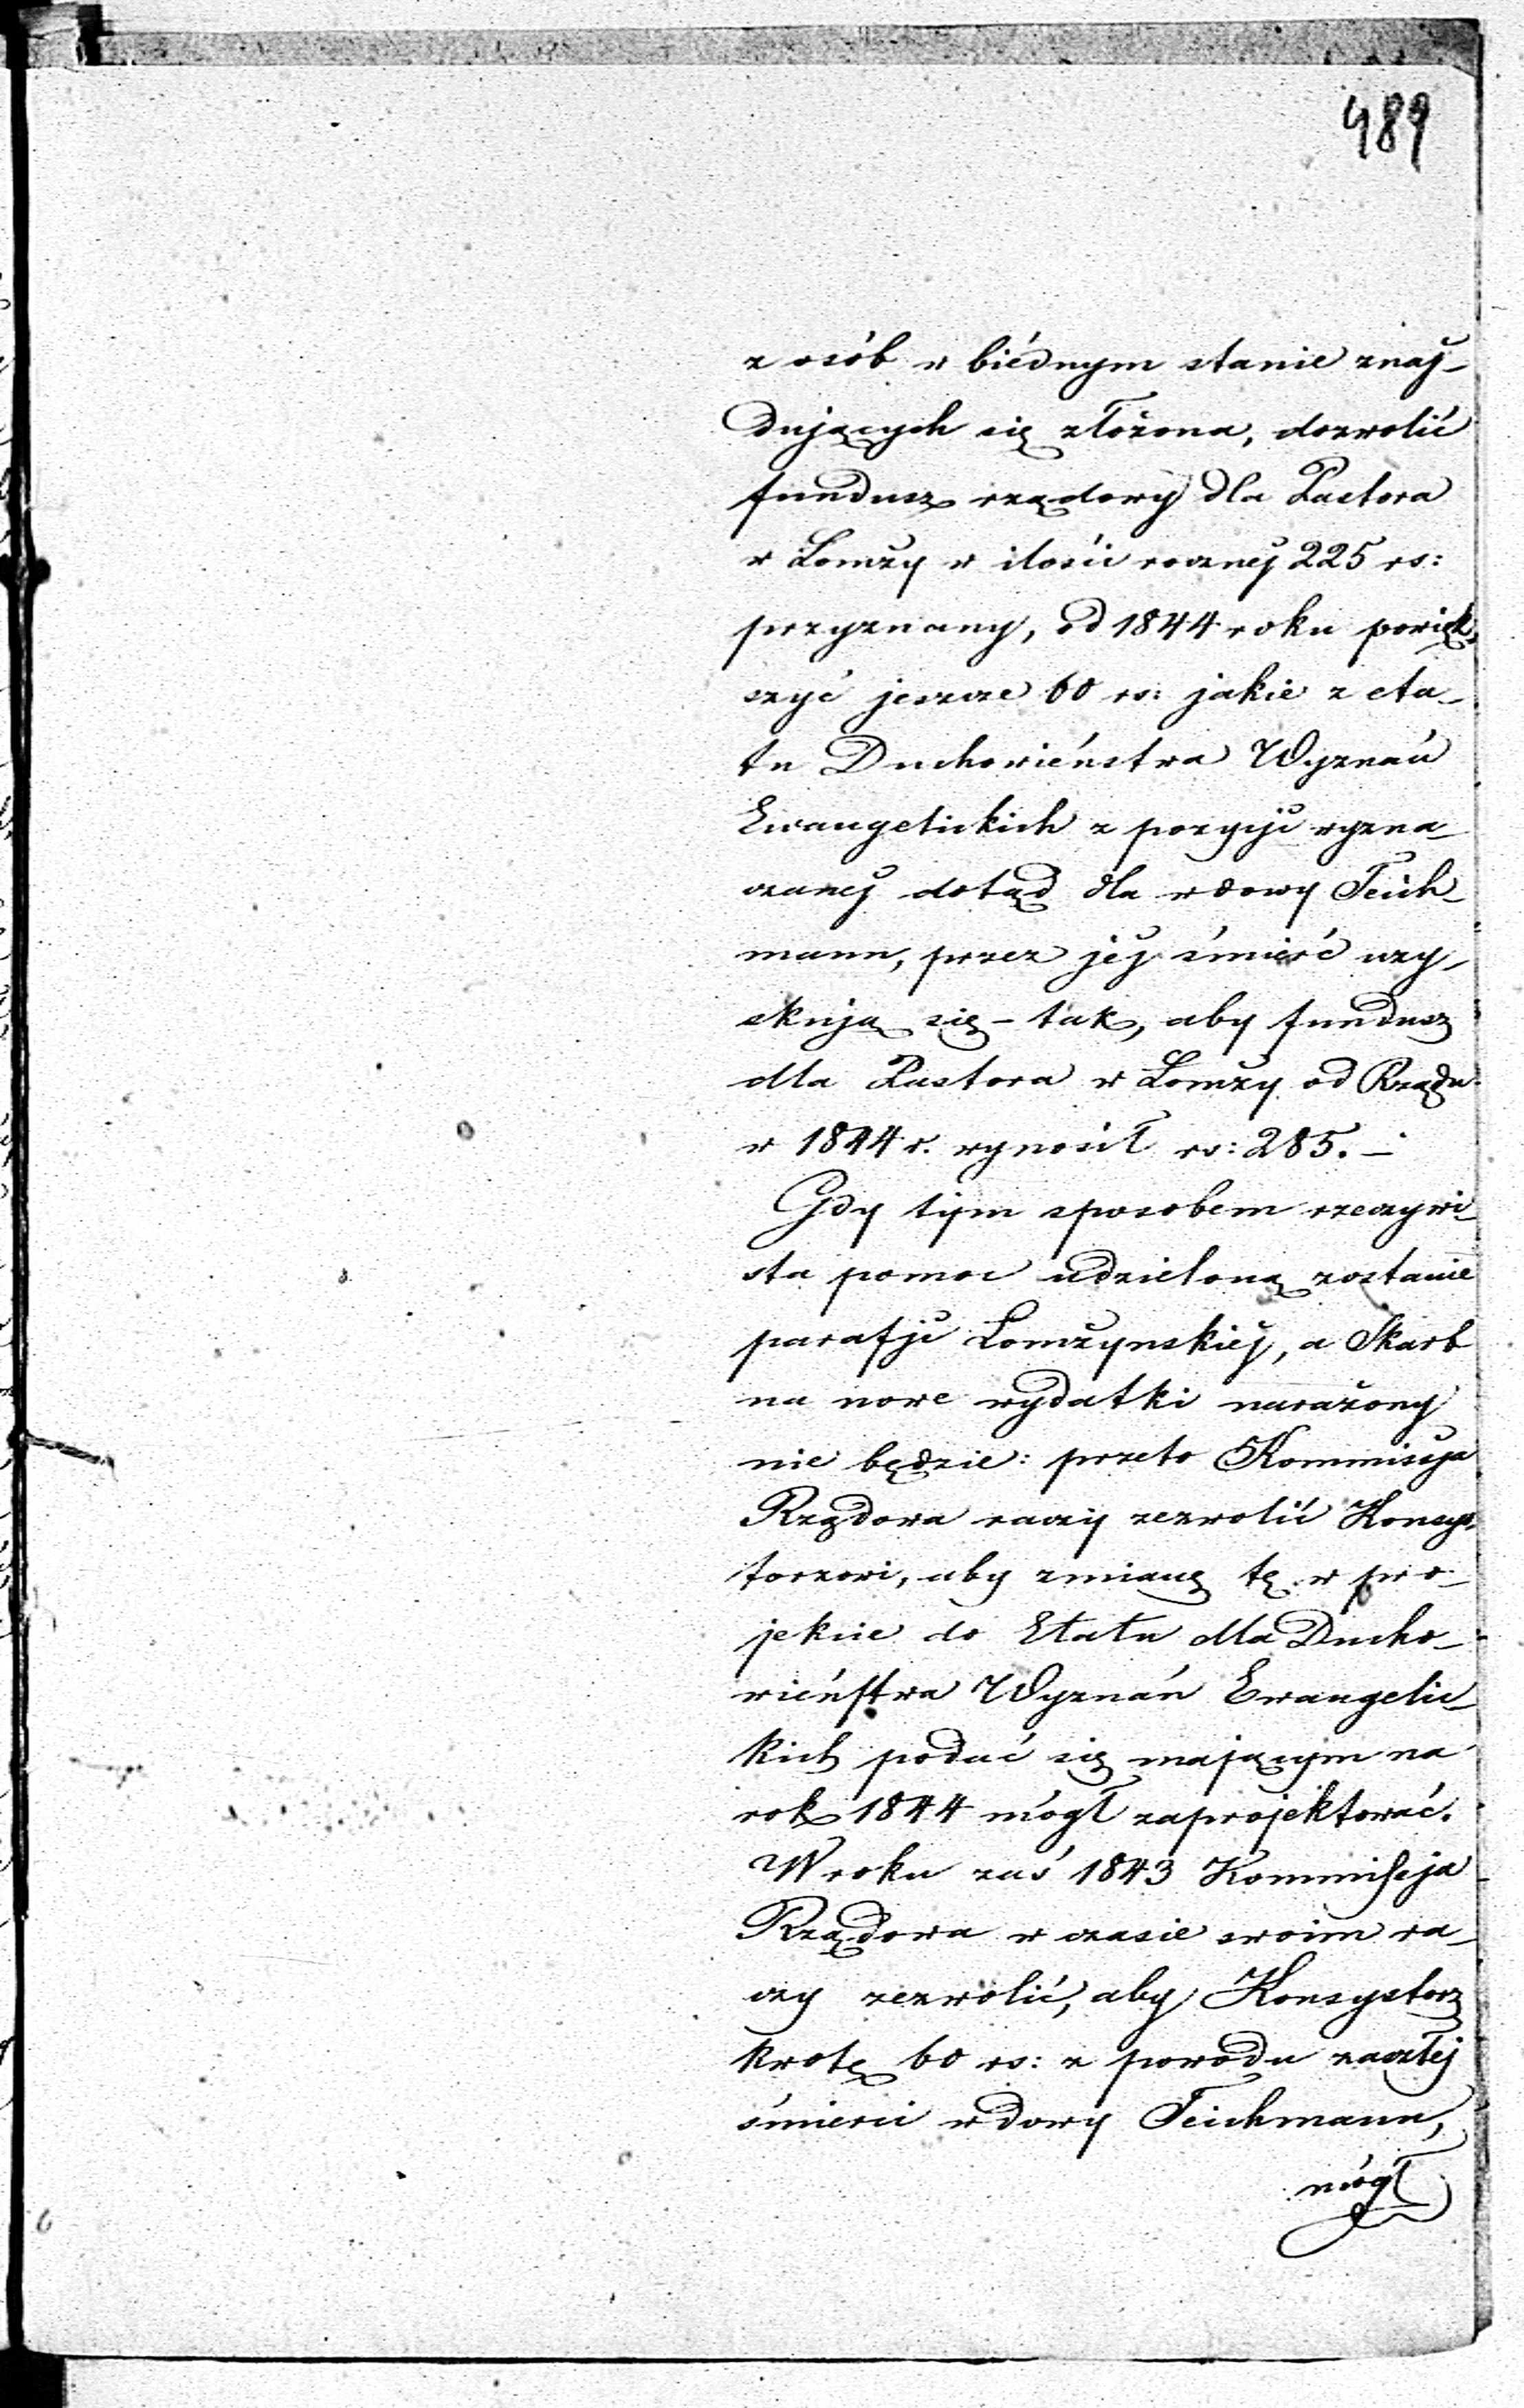 489
z osób w biédnym stanie znaj-
dujących się złożona, dozwolić
fundusz rządowy dla Pastora
w Łomży w ilości roczney 225 rs:
przyznany, od 1844 roku powięk-
szyć jeszcze 60 rs: jakie z eta-
tu Duchowieństwa Wyznań
Ewangelickich z pozycji wyzna-
czaney dotąd dla wdowy Teich-
mann, przez jéj śmierć uzy-
skują się - tak, aby fundusz
dla Pastora w Łomży od Rządu
w 1844 r. wynosił rs: 285. -
Gdy tym sposobem rzeczywi-
sta pomoc udzieloną zostanie
parafji Łomżynskiéj, a Skarb
na nowe wydatki narażony
nie będzie: przeto Kommissja
Rządowa raczy zezwolić Konsys-
torzowi, aby zmianę tę w pro-
jekcie do Etatu dla Ducho-
wieństwa Wyznań Ewangelic-
kich podać się mającym na
rok 1844 mógł zaprojektować.
W roku zaś 1843 Kommissja
Rządowa w czasie swoim ra-
czy zezwolić, aby Konsystorz
kwotę 60 rs: z powodu zaszłéj
śmierci wdowy Teichmann,
mógł